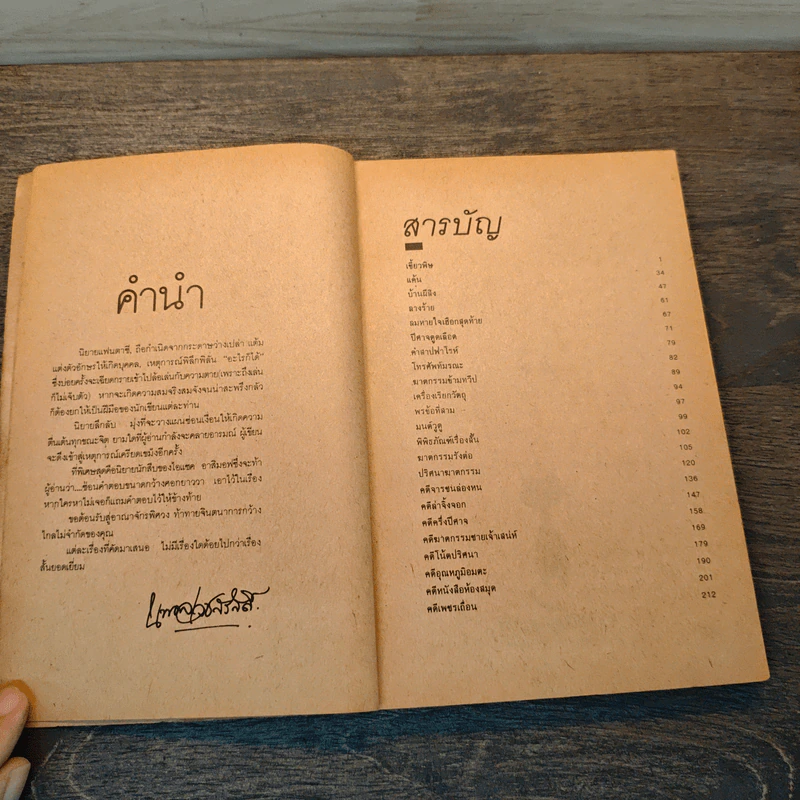 คำนำ
นิยายแฟนตาซี, ถือกำเนิดจากกระดาษว่างเปล่า แต้ม
แต่งตัวอักษรให้เกิดบุคคล, เหตุการณ์พิลึกพิลั่น "อะไรก็ได้"
ซึ่งบ่อยครั้งจะเฉียดกรายเข้าไปล้อเล่นกับความตาย(เพราะถึงเล่น
ก็ไม่เจ็บตัว) หากจะเกิดความสมจริงสมจังจนน่าสะพรึงกลัว
ก็ต้องยกให้เป็นฝีมือของนักเขียนแต่ละท่าน
นิยายลึกลับ มุ่งที่จะวางแผนซ่อนเงื่อนให้เกิดความ
ตื่นเต้นทุกขณะจิต ยามใดที่ผู้อ่านกำลังจะคลายอารมณ์ ผู้เขียน
จะดึงเข้าสู่เหตุการณ์เครียดเขม็งอีกครั้ง
ที่พิเศษสุดคือนิยายนักสืบของไอแซค อาสิมอฟซึ่งจะท้า
ผู้อ่านว่า...ซ่อนคำตอบขนาดกว้างศอกยาววา เอาไว้ในเรื่อง
หากใครหาไม่เจอก็แถมคำตอบไว้ให้ข้างท้าย
ขอต้อนรับสู่อาณาจักรพิศวง ท้าทายจินตนาการกว้าง
ไกลไม่จำกัดของคุณ
แต่ละเรื่องที่คัดมาเสนอ ไม่มีเรื่องใดด้อยไปกว่าเรื่อง
สั้นยอดเยี่ยม
สารบัญ
เขี้ยวพิษ 1
แค้น 34
บ้านผีสิง 47
ลางร้าย 61
ลมหายใจเฮือกสุดท้าย 67
ปีศาจดูดเลือด 71
คำสาปฟาโรห์ 79
โทรศัพท์มรณะ 82
ฆาตกรรมข้ามทวีป 89
เครื่องเรียกวัตถุ 94
พรข้อที่สาม 97
มนต์วูดู 99
พิพิธภัณฑ์เรื่องสั้น 102
ฆาตกรรมรังต่อ 105
ปริศนาฆาตกรรม 120
คดีจารชนล่องหน 136
คดีล่าจิ้งจอก 147
คดีครึ่งปีศาจ 158
คดีฆาตกรรมชายเจ้าเสน่ห์ 169
คดีโน้ตปริศนา 179
คดีอุณหภูมิอมตะ 190
คดีหนังสือห้องสมุด 201
คดีเพชรเถื่อน 212